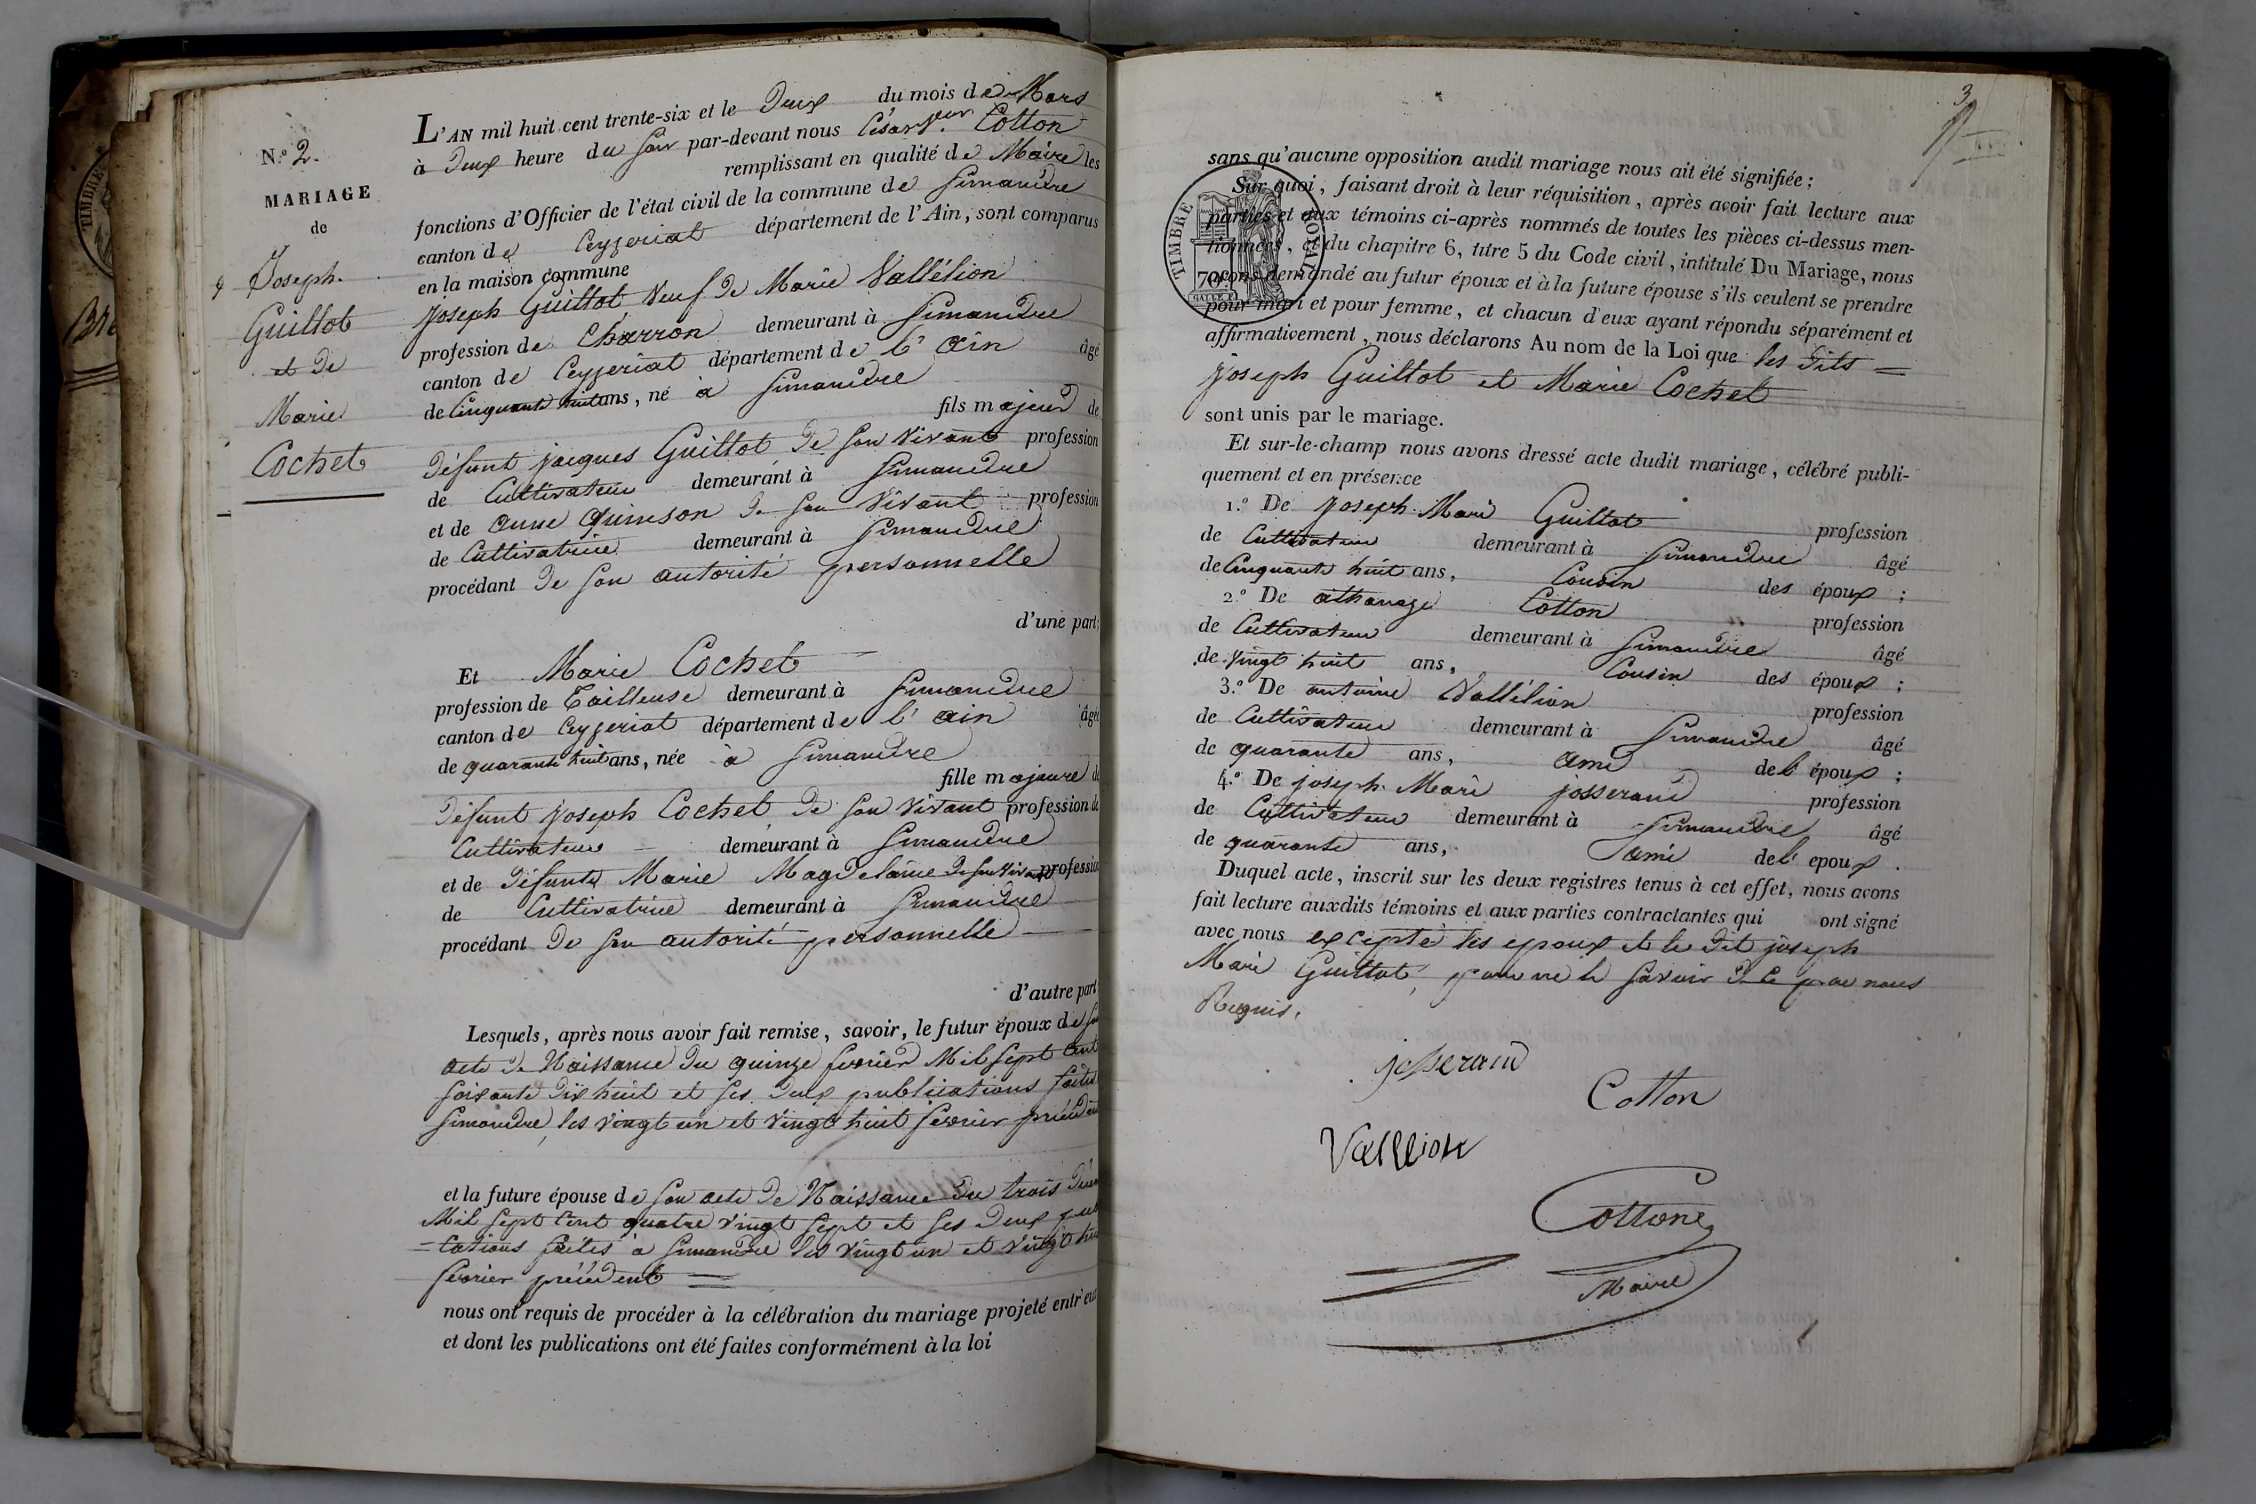 N.º 2.
MARIAGE
de
Joseph.
Guillot
et De
Marie
Cochet
L'AN mil huit cent trente-six et le Deux du mois de Mars
à Deux heure du soir par-devant nous César Cotton
remplissant en qualité de Maire les
fonctions d'Officier de l'état civil de la commune de Simandre
canton de Ceyzeriat département de l'Ain, sont comparus
en la maison commune
Joseph Guillot Veuf De Marie Vallélion
profession de Charron demeurant à Simandre
canton de Ceyzeriat département de l'ain âgé
de Cinquante huit ans, né à Simandre
fils majeur de
Défunt Jacques Guillot De son Vivant profession
de Cultivateur demeurant à Simandre
et de anne quinson De son Vivant profession
de Cultivatrice demeurant à Simandre
procédant De son autorité personnelle
d'une part;
Et Marie Cochet
profession de Tailleuse demeurant à Simandre
canton de Ceyzeriat département de l'ain âgée
de quarante huit ans, née à Simandre
fille majeure de
Défunt Joseph Cochet De son Vivant profession de
Cultivateur demeurant à Simandre
et de Défunte Marie Magdelaine De son Vivant profession
de Cultivatrice demeurant à Simandre
procédant De son autorité personnelle
d'autre part
Lesquels, après nous avoir fait remise, savoir, le futur époux de son
acte De Naissance Du quinze fevrier Mil sept Cent
soixante Dix huit et ses Deux publications faites
Simandre, les Vingt un et Vingt huit fevrier précédent
et la future épouse de son acte De Naissance Du trois
Mil sept Cent quatre Vingt sept et ses Deux pub
=cations faites à Simandre les Vingt un et Vingt huit
fevrier précédent =
nous ont requis de procéder à la célébration du mariage projeté entr'eux
et dont les publications ont été faites conformément à la loi
3
TIMBRE ROYAL
70
sans qu'aucune opposition audit mariage nous ait été signifiée;
Sur quoi, faisant droit à leur réquisition, après avoir fait lecture aux
parties et aux témoins ci-après nommés de toutes les pièces ci-dessus men-
tionnées, et du chapitre 6, titre 5 du Code civil, intitulé Du Mariage, nous
avons demandé au futur époux et à la future épouse s'ils veulent se prendre
pour mari et pour femme, et chacun d'eux ayant répondu séparément et
affirmativement, nous déclarons Au nom de la Loi que les Dits =
Joseph Guillot et Marie Cochet
sont unis par le mariage.
Et sur-le-champ nous avons dressé acte dudit mariage, célébré publi-
quement et en présence
1.º De Joseph Marie Guillot profession
de Cultivateur demeurant à Simandre âgé
de Cinquante huit ans, Cousin des époux;
2.º De athanaze Cotton profession
de Cultivateur demeurant à Simandre âgé
de Vingt huit ans, Cousin des époux;
3.º De antoine Vallélion profession
de Cultivateur demeurant à Simandre âgé
de quarante ans, ami de l'époux;
4.º De joseph Marie josserand profession
de Cultivateur demeurant à Simandre âgé
de quarante ans, ami de l'epoux.
Duquel acte, inscrit sur les deux registres tenus à cet effet, nous avons
fait lecture auxdits témoins et aux parties contractantes qui ont signé
avec nous excepté les epoux et le Dit joseph
Marie Guillot, pour ne le savoir De ce par nous
Requis.
josserand
Cotton
Vallion
Cotton
Maire